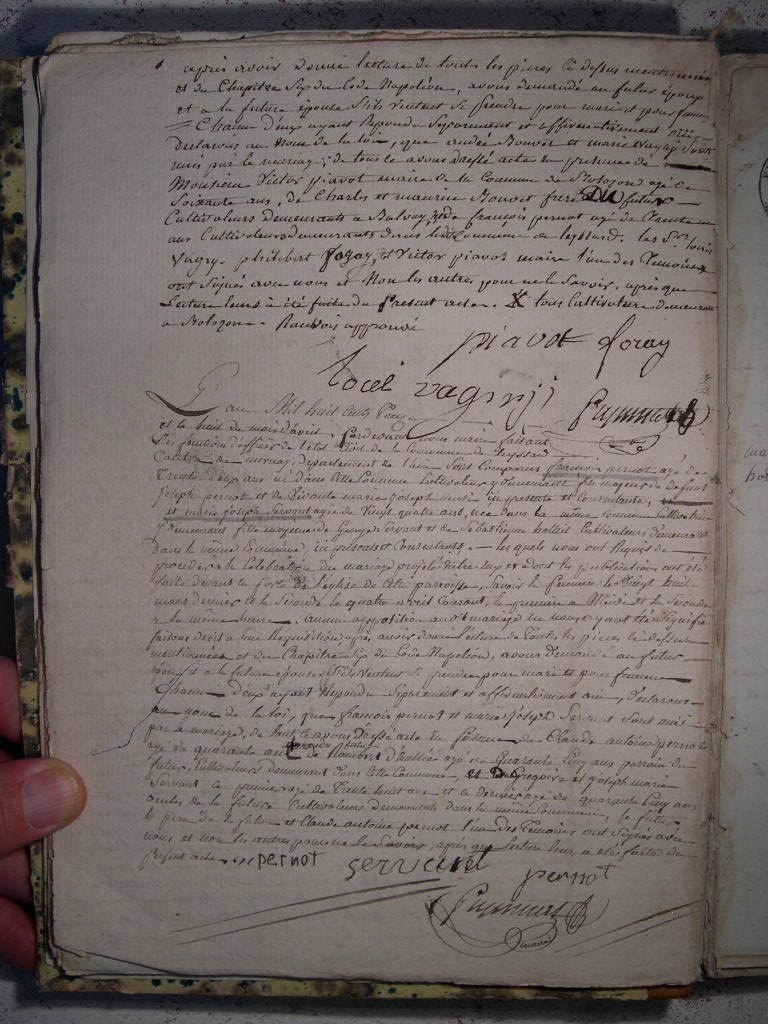 après avoir donné lecture de toutes les pièces ci dessus mentionnées
et du Chapitre Six du Code Napoléon, avons demandé au futur époux
et a la future épouse s'ils veulent se prendre pour mari et pour femme
Chacun d'eux ayant Repondu Séparément et affirmativement
declarons au nom de la loi, que andré Bouvet et marie vagry Sont
unis par le mariage; de tous ce avons dressé acte en presence de
Monsieur Victor piavot maire de la Commune de Bolozon agé de
Soixante ans, de Charles et maurice Bouvet frere DU futur
Cultivateurs demeurants a françois pernot agé de trente
ans Cultivateurs demeurants dans Commune de leyssard. les Srs
Vagry. philibert foray, et Victor piavot maire l'un des Temoins
ont Signés avec nous et Non les autres pour ne le Savoir, après que
Lecture leurs à été faite du Present acte. X tous Cultivateurs demeurants
a Bolozon. Renvois approuvé
piavot foray
vagry
L'an Mil huit Cents Treize
et le huit du mois d'avril, pardevant nous maire faisant
Les fonctions d'officier de l'etat Civil de la Commune de leyssard
Canton de departement de l'ain Sont Comparus françois pernot agé de
Trente Deux ans né dans cette Commune Cultivateur y demeurant fils majeur de defunt
joseph pernot et de Vivante marie joseph ici presente et Consentante,
et marie joseph Servant agée de Vingt quatre ans, née dans la même Commune Cultivatrice
y demeurant fille majeure de George Servant et de Sebastienne Cultivateurs demeurants
Dans la même Commune, ici présents et Consentants. lesquels nous ont Requis de
proceder a la Celebration du mariage projeté entre eux et dont les publications ont été
faites devant la porte de l'église de cette paroisse, Savoir la premiere le Vingt huit
mars dernier et la Seconde le quatre avril Courant, la premiere a Midi et la Seconde
a la même heure. aucune opposition audit mariage ne nous ayant été Signifié
faisant droit a leur Requisition, après avoir donné lecture de Toutes les pieces ci dessus
mentionnées et du Chapitre Six du Code Napoléon, avons demandé au futur
époux et a la future épouse s'ils veulent se prendre pour mari et pour femme
Chacun d'eux ayant Repondu Séparément et affirmativement oui, declarons
au nom de la loi, que françois pernot et marie joseph Servant Sont unis
par le mariage, de tout ce avons Dressé acte en presence de Claude antoine pernot
agé de quarante ans de agé de Quarante Cinq ans parrain du
futur, Cultivateurs demeurant Dans cette Commune, et De Gregoire et joseph marie
Servant le premier agé de Trente huit ans et le dernier agé de quarante Cinq ans
oncles de la future Cultivateurs demeurants dans la même Commune, le futur
le pere de la future et Claude antoine pernot l'un Des Temoins ont Signés avec
nous et non les autres pour ne le Savoir, après que lecture leur a été faite du
Present acte. pernot servant pernot
maire